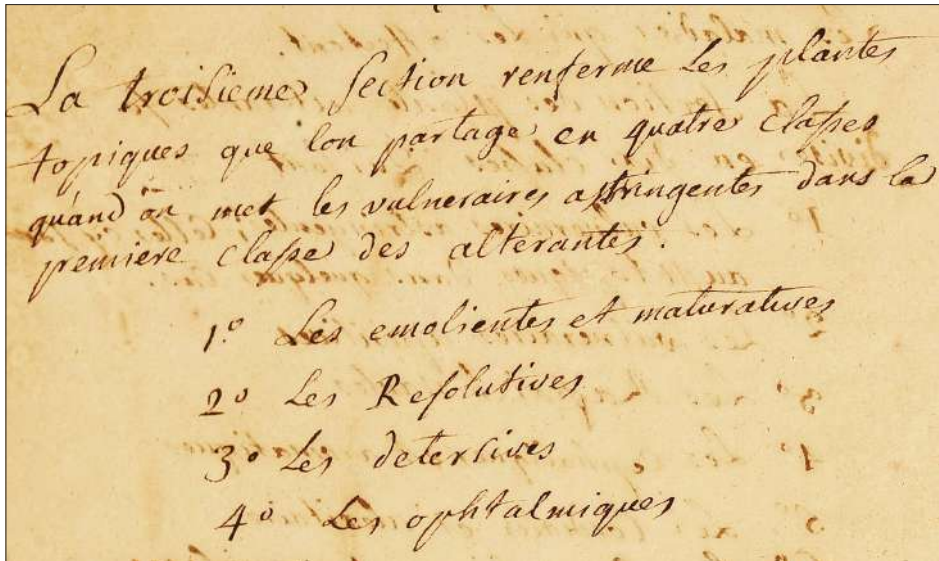 La troisieme Section renferme Les plantes
topiques que lon partage en quatre classes
quand on met les vulneraires astringentes dans la
premiere classe des alterantes.
1º Les emolientes et maturatives
2º Les Resolutives
3º Les detersives
4º Les ophtalmiques